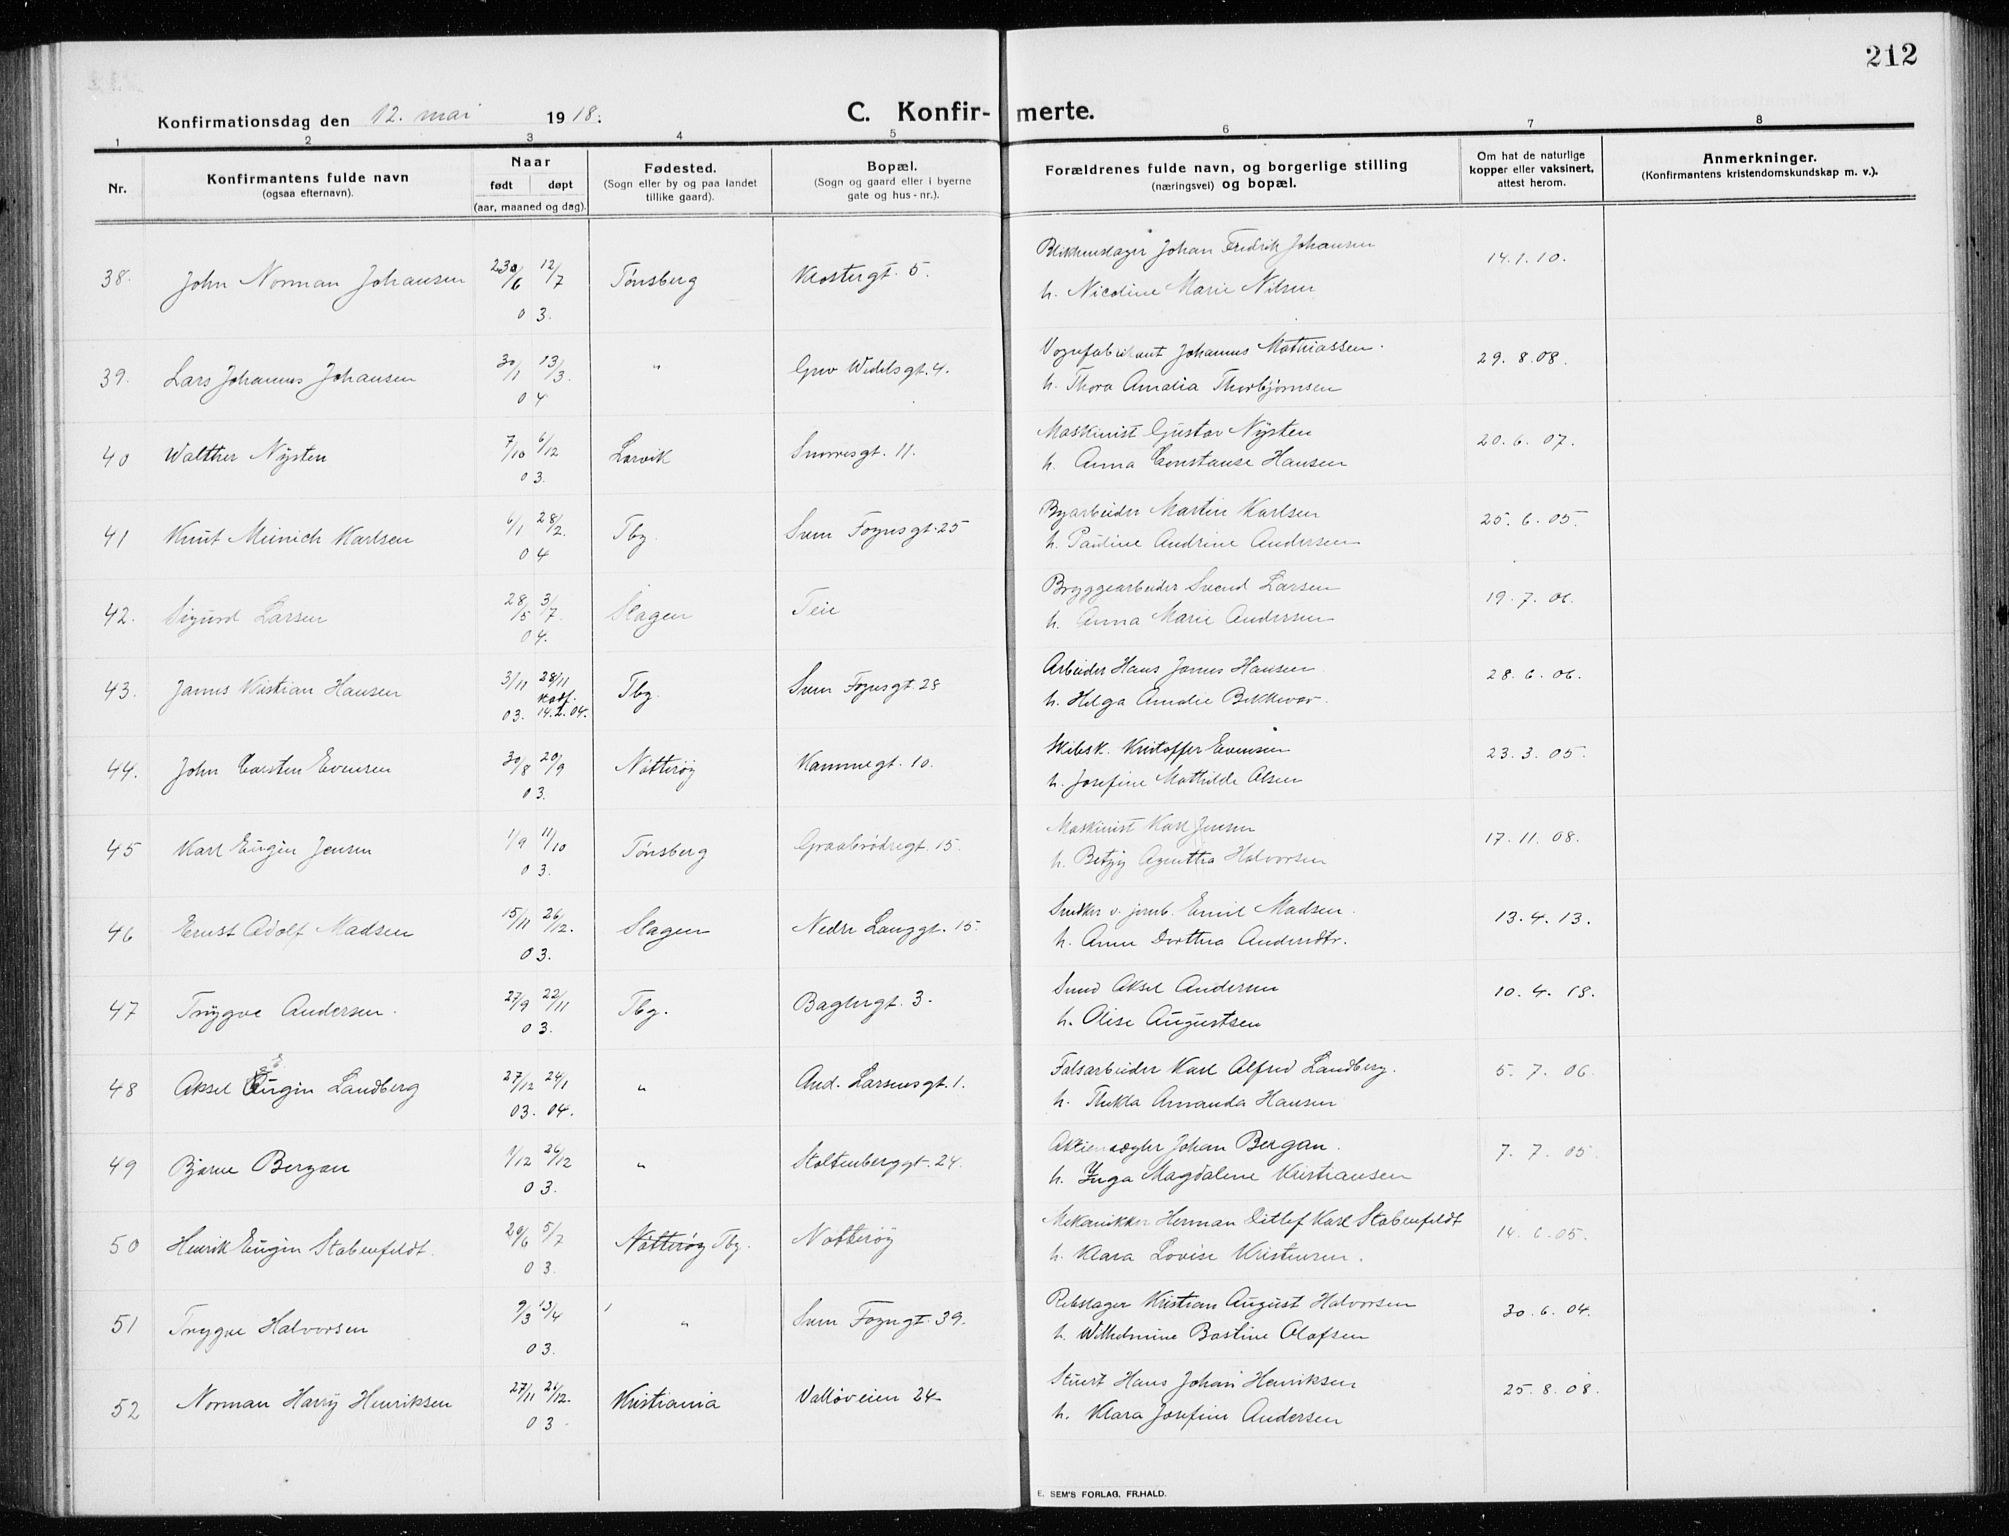 212
Konfirmationsdag den 12. mai 1918.
C. Konfir- merte.
1 2 3 4 5 6 7 8
Nr.
Konfirmantens fulde navn
(ogsaa efternavn).
Naar
født døpt
(aar, maaned og dag).
Fødested.
(Sogn eller by og paa landet
tillike gaard).
Bopæl.
(Sogn og gaard eller i byerne
gate og hus-nr.).
Forældrenes fulde navn, og borgerlige stilling
(næringsvei) og bopæl.
Om hat de naturlige
kopper eller vaksinert,
attest herom.
Anmerkninger.
(Konfirmantens kristendomskundskap m. v.).
38. John Norman Johansen 23/6 12/7 Tønsberg Klostergt. 5. Blikkenslager Johan Fredrik Johansen 14.1.10.
03. h. Nicoline Marie Nilsen
39. Lars Johannes Johansen 30/1 13/3. " Grev Wedelsgt. 4. Vognfabrikant Johannes Mathiassen. 29.8.08.
04 h. Thora Amalia Thorbjørnsen
40 Walther Nysten 7/10 6/12 Larvik Snorresgt. 11. Maskinist Gustav Nysten 20.6.07.
03. h. Anna Constanse Hansen
41 Knut Meinich Karlsen 6/1 28/2. Tbg. Svem Foynsgt. 25 Byarbeider Martin Karlsen 25.6.05.
04 h. Pauline Andrine Andersen
42. Sigurd Larsen 28/5 3/7. Slagen Teie Bryggearbeider Svend Larsen 19.7.06.
04. h. Anna Marie Andersen
43. James Kristian Hansen 3/11 28/11 Tbg. Svem Foynsgt. 28 Arbeider Hans James Hansen 28.6.06.
stadf.
03. 14.2.04. h. Helga Amalie Bekkevar.
44. John Carsten Evensen 30/8 20/9 Nøtterøy Kammegt. 10. Skibsk. Kristoffer Evensen 23.3.05.
03. h. Josefine Mathilde Olsen
45 Karl Eugen Jensen 1/9 11/10 Tønsberg Graabrødregt. 15. Maskinist Karl Jensen 17.11.08.
03. h. Betzy Agentha Halvorsen
46 Ernst Adolf Madsen 15/11 26/12. Slagen Nedre Langgt. 15. Snedker v. jernb. Emil Madsen. 13.4.13.
03. h. Anne Dorthea Andersdtr.
47 Trygve Andersen. 27/9 22/11 Tbg. Baglergt. 3. Smed Aksel Andersen 10.4.18.
03. h. Olise Augustsen
48 Aksel Eugen Landberg 27/12 24/1 " And. Larsensgt. 1. Falsarbeider Karl Alfred Landberg. 5.7.06.
03. 04. h. Thekla Amanda Hansen
49 Bjarne Bergan 1/12 26/12 " Stoltenberggt. 24. Johan Bergan. 7.7.05.
03. h. Inga Magdalene Kristiansen
50 Henrik Eugen Stabenfeldt. 20/6 5/7 Nøtterøy Tbg. Nøtterøy Mekaniker Herman Ditlef Karl Stabenfeldt 14.6.05.
03. h. Klara Lovise Kristensen.
51 Trygve Halvorsen 9/3 13/4 " Svem Foyngt. 39. Rebslager Kristian August Halvorsen 30.6.04.
03. h. Wilhelmine Bastine Olafsen
52 Norman Harry Henriksen 27/11 26/12. Kristiania Valløveien 24 Stuert Hans Johan Henriksen 25.8.08.
03 h. Klara Josefine Andersen
E. SEM'S FORLAG, FR.HALD.